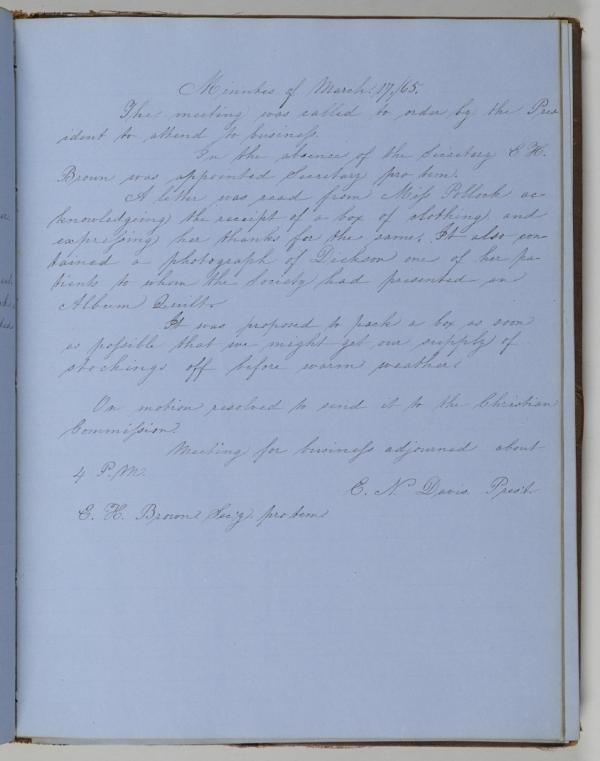 Minutes of March. 17,/65.
The meeting was called to order by the Pres
ident to attend to business.
In the absence of the Secretary E. H.
Brown was appointed Secretary pro tem.
A letter was read from Miss Pollock ac-
knowledgeing the receipt of a box of clothing and
expressing her thanks for the same. It also con-
tained a photograph of Dickson one of her pa-
tients to whom the Society had presented an
Album Quilt.
It was proposed to pack a box as soon
as possible that we might get our supply of
stockings off before warm weather.
On motion resolved to send it to the Christian
Commission.
Meeting for business adjourned about
4 P.M.
E. N. Davis Pres't.
E. H. Brown Sec'y. pro tem.